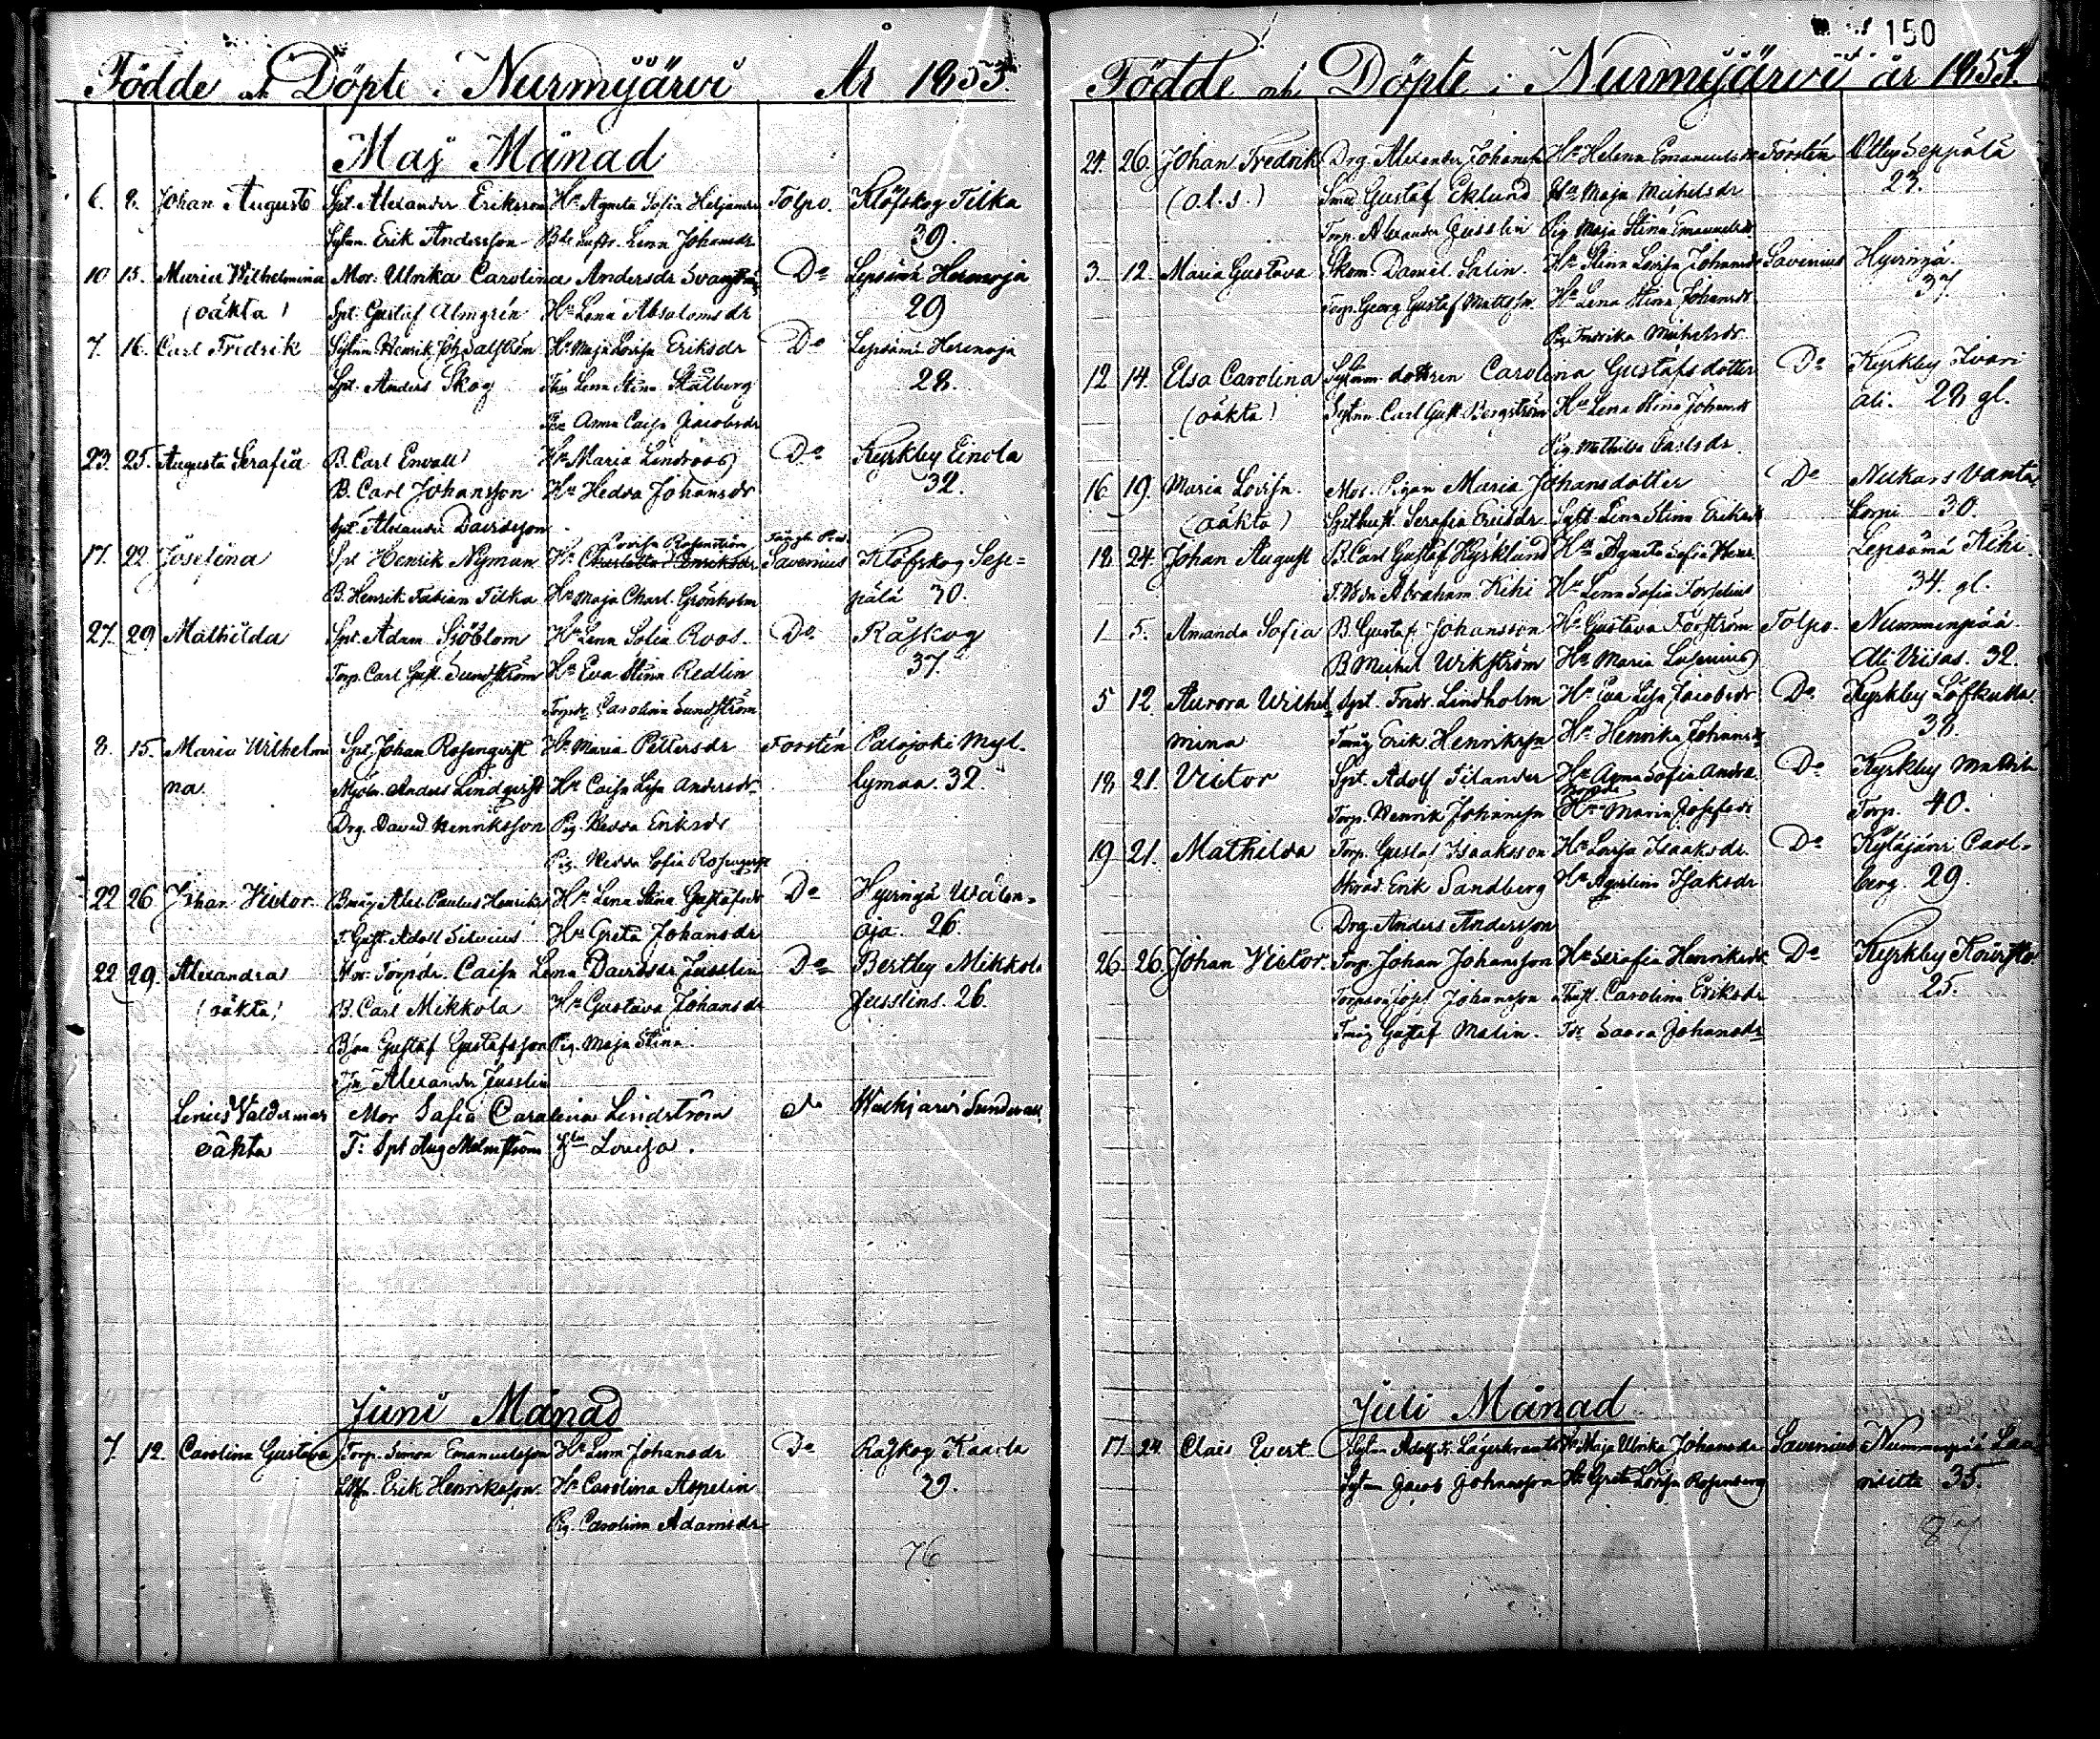 Födde och Döpte i Nurmijärvi År 1855.
Maj Månad
6. 8. Johan August Spt. Alexander Eriksson Hu Agneta Sofia Tolpo. Klöfskog Tilka
Sytnm. Erik Andersson Lena Johansdr 39.
10 15. Maria Wilhelmina Mor. Ulrika Carolina Andersdr Do Lepsämä Herunoja
(oäkta) Spt. Gustaf Almgrén Hu Lena Absalomsdr 29
7. 16. Carl Fredrik Sytnm. Henrik Joh. Salström Hu Maja Lovisa Eriksdr Do Lepsämä Herunoja
Spt. Anders Skog Lena Stina Stålberg 28.
Anna Caisa Jacobsdr
23. 25. Augusta Serafia B. Carl Envall Hu Maria Lindroos Do Kyrkby Einola
B. Carl Johansson Hu Hedva Johansdr 32.
Spt. Alexander Davidsson
Lovisa Rosenström
17. 22 Josefina Spt Henrik Nyman Hu Charlotta Henriksdr Savenius Klöfskog Sep=
B. Henrik Fabian Tilka Hu Maja Charl. Grönholm pälä 30.
27. 29 Mathilda Spt. Adam Sjöblom Hu Lena Sofia Roos. Do Råskog
Torp. Carl Gust. Sundström Hu Eva Stina Redlin 37.
Carolina Sundström
8. 15. Maria Wilhelmi Spt. Johan Rosenqvist Hu Maria Pettersdr Forstén Palojoki Myl-
na Mjöln. Anders Lindqvist Hu Caisa Lisa Andersdr lymaa. 32.
Drg. David Henriksson Pig. Hedva Eriksdr
Pig. Hedva Sofia Rosenqvist
22 26 Johan Victor. Paulus Hu Lena Stina Gustafsdr Do Hyvingä
Gust. Adolf Silvius Hu Greta Johansdr oja. 26.
22 29. Alexandra Mor. Torpdr. Caisa Lena Davidsdr Jusslin Do Bertby Mikkola
(oäkta) B. Carl Mikkola Hu Gustava Johansdr Jusslins. 26.
Gustaf Gustafsson Pig. Maja Stina
Alexander Jusslin
Valdemar Mor Sofia Carolina Lindström do
oäkta F: Spt Aug Malmström Hu Lovisa.
Juni Månad
7. 12. Carolina Gustava Torp. Simon Emanuelsson Hu Lena Johansdr Do Råskog Kaarla
Erik Henriksson Hu Carolina Aspelin 29.
Pig. Carolina Adamsdr
76
150
Födde och Döpte i Nurmijärvi år 1855.
24. 26. Johan Fredrik Drg. Alexander Johansson Hu Helena Emanuelsdr Forstén Otlby Seppälä
Smed Gustaf Eklund Hu Maja Michelsdr 23.
Torp. Alexander Gusslin Pig. Maja Stina Emanuelsdr
3. 12. Maria Gustava Skom. Daniel Salin. Hu Stina Lovisa Johansdr Savenius Hyvingä
Torp. Georg Gustaf Mattsson. Hu Lena Stina Johansdr 37.
Pig. Fredrika Michelsdr.
12 14. Elsa Carolina Sytnm. dottren Carolina Gustafsdotter Do Kyrkby Iivari
(oäkta) Sytnm. Carl Gust. Bergström Hu Lena Stina Johansdr ali. 28 gl.
Pig. Mathilda Carlsdr.
16 19. Maria Lovisa. Mor. Pigan Maria Johansdotter Do Nukars Vanta
(oäkta) Serafia Ericsdr. Lena Stina Eriksdr korpi 30.
18 24. Johan August B. Carl Gustaf Kyrklund Hu Agneta Sofia Lepsämä Kihi
Abraham Kihi Hu Lena Sofia Forselius 34. gl.
1 5. Amanda Sofia B. Gustaf Johansson Hu Gustava Forström Tolpo. Nummenpää
B Michel Wikström Hu Maria Ali Viisas. 32.
5 12. Aurora Wilhel Spt. Fredr. Lindholm Hu Eva Lisa Jacobsdr Do Kyrkby Löfkulla.
mina Erik Henriksson Hu Henrika Johansdr 38.
18 21. Victor Spt. Adolf Filander Hu Anna Sofia Do Kyrkby Mattila
Torp. Henrik Johansson Hu Maria Josefsdr Torp. 40.
19 21. Mathilda Torp. Gustaf Isaksson Hu Lovisa Isaaksdr. Do Kyläjärvi Carl-
Erik Sandberg Hu Agustina Isaksdr berg. 29.
Drg. Anders Andersson
26. 26. Johan Victor. Torp. Johan Johansson Hu Serafia Henriksdr Do Kyrkby
Johansson Carolina Eriksdr 25.
Gustaf Malin. Saara Johansdr
Juli Månad
17 24. Claës Evert Sytnm Adolf Fr. Lagerkrantz Hu Maja Ulrika Johansdr Savenius Nummenpää
Sytnm Jacob Johansson Hu Greta Lovisa Rosenberg 35.
87